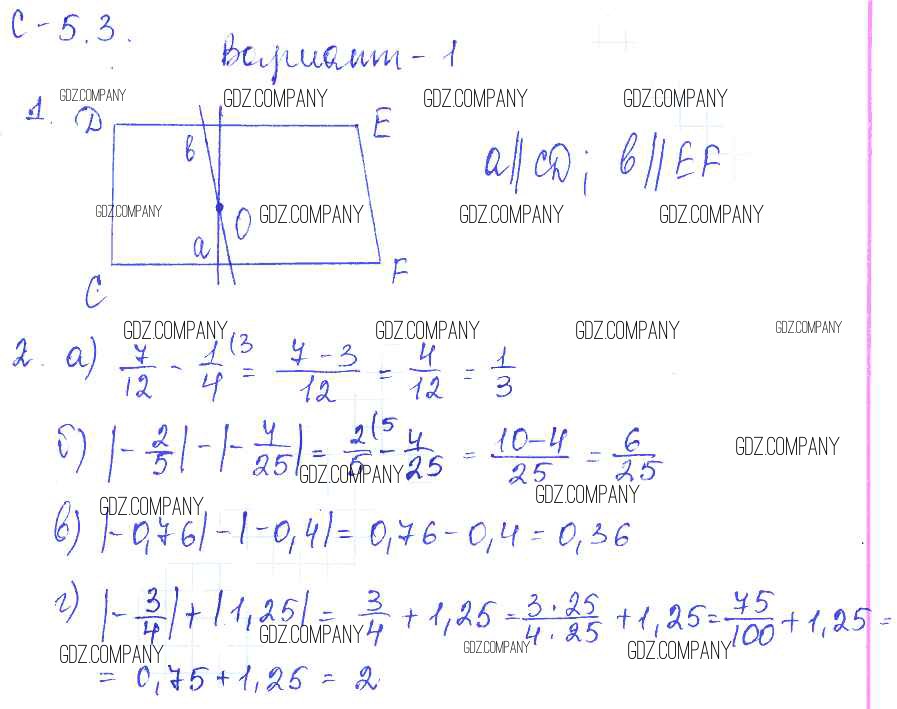 С-5.3.
Вариант-1
GDZ.COMPANY GDZ.COMPANY GDZ.COMPANY GDZ.COMPANY
1. D E
в
a || CD; в || EF
GDZ.COMPANY GDZ.COMPANY GDZ.COMPANY GDZ.COMPANY
O
a
C F
GDZ.COMPANY GDZ.COMPANY GDZ.COMPANY GDZ.COMPANY
2. а) 7/12 - 1/4 (3 = (7-3)/12 = 4/12 = 1/3
б) |-2/5| - |-4/25| = 2/5 (5 - 4/25 = (10-4)/25 = 6/25
GDZ.COMPANY GDZ.COMPANY
GDZ.COMPANY GDZ.COMPANY
в) |-0,76| - |-0,4| = 0,76 - 0,4 = 0,36
г) |-3/4| + |1,25| = 3/4 + 1,25 = (3·25)/(4·25) + 1,25 = 75/100 + 1,25 =
GDZ.COMPANY GDZ.COMPANY GDZ.COMPANY GDZ.COMPANY
= 0,75 + 1,25 = 2